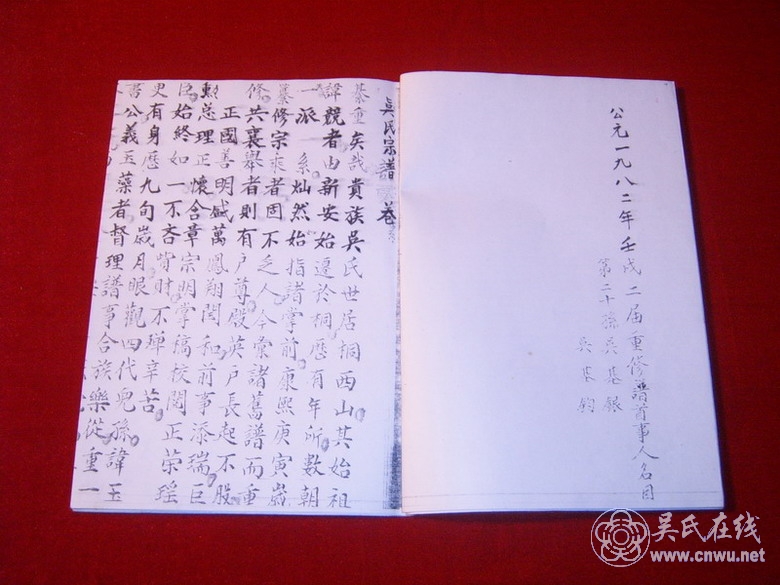 公元一九八二年壬戌二届重修譜首事人名目
第二十孫吳基銀
吳基鈞
吳氏宗譜 卷
綦重矣哉貴族吳氏世居桐西山其始祖
諱觀者由新安始遷於桐歷有年所數朝
一派系燦然始指諸掌前康熙庚寅歲
纂修宗來者固不乏人今彙諸舊譜而重
修共襄舉者則有户尊殿英户長起不股
正國善明盛萬鳳翔閏和前事添瑞巨
勲总理正懷合章宗明掌稿校閱正荣瑶
臣始終如一不吝背时不殫辛苦
更有身歷九旬歲月眼觀四代兒孫諱玉
書公義玉藻者督理譜事合族樂從重一
吴氏在线
www.cnwu.net